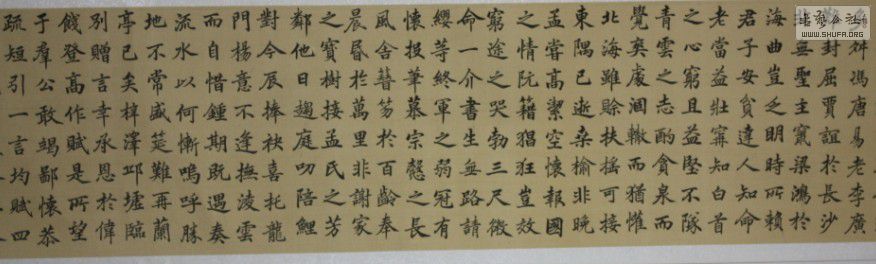 多舛馮唐易老李廣
難封屈賈誼於長沙
非無聖主竄梁鴻於
海曲豈乏明時所賴
君子安貧達人知命
老當益壯寧知白首
之心窮且益堅不隊
青雲之志酌貪泉而
覺爽處涸轍而猶懽
北海雖賒扶搖可接
東隅已逝桑榆非晚
孟嘗高潔空懷報國
之情阮籍猖狂豈效
窮途之哭勃三尺微
命一介書生無路請
纓等終軍之弱冠有
懷投筆慕宗愨之長
風舍簪笏於百齡奉
晨昏於萬里非謝家
之寶樹接孟氏之芳
鄰他日趨庭叨陪鯉
對今辰捧袂喜托龍
門楊意不逢撫凌雲
而自惜鍾期既遇奏
流水以何慚嗚呼勝
地不常盛筵難再蘭
亭已矣梓澤邱墟臨
別贈言幸承恩於偉
餞登高作賦是所望
于羣公敢竭鄙懷恭
疏短引一言均賦四
WWW.SHUFA.ORG